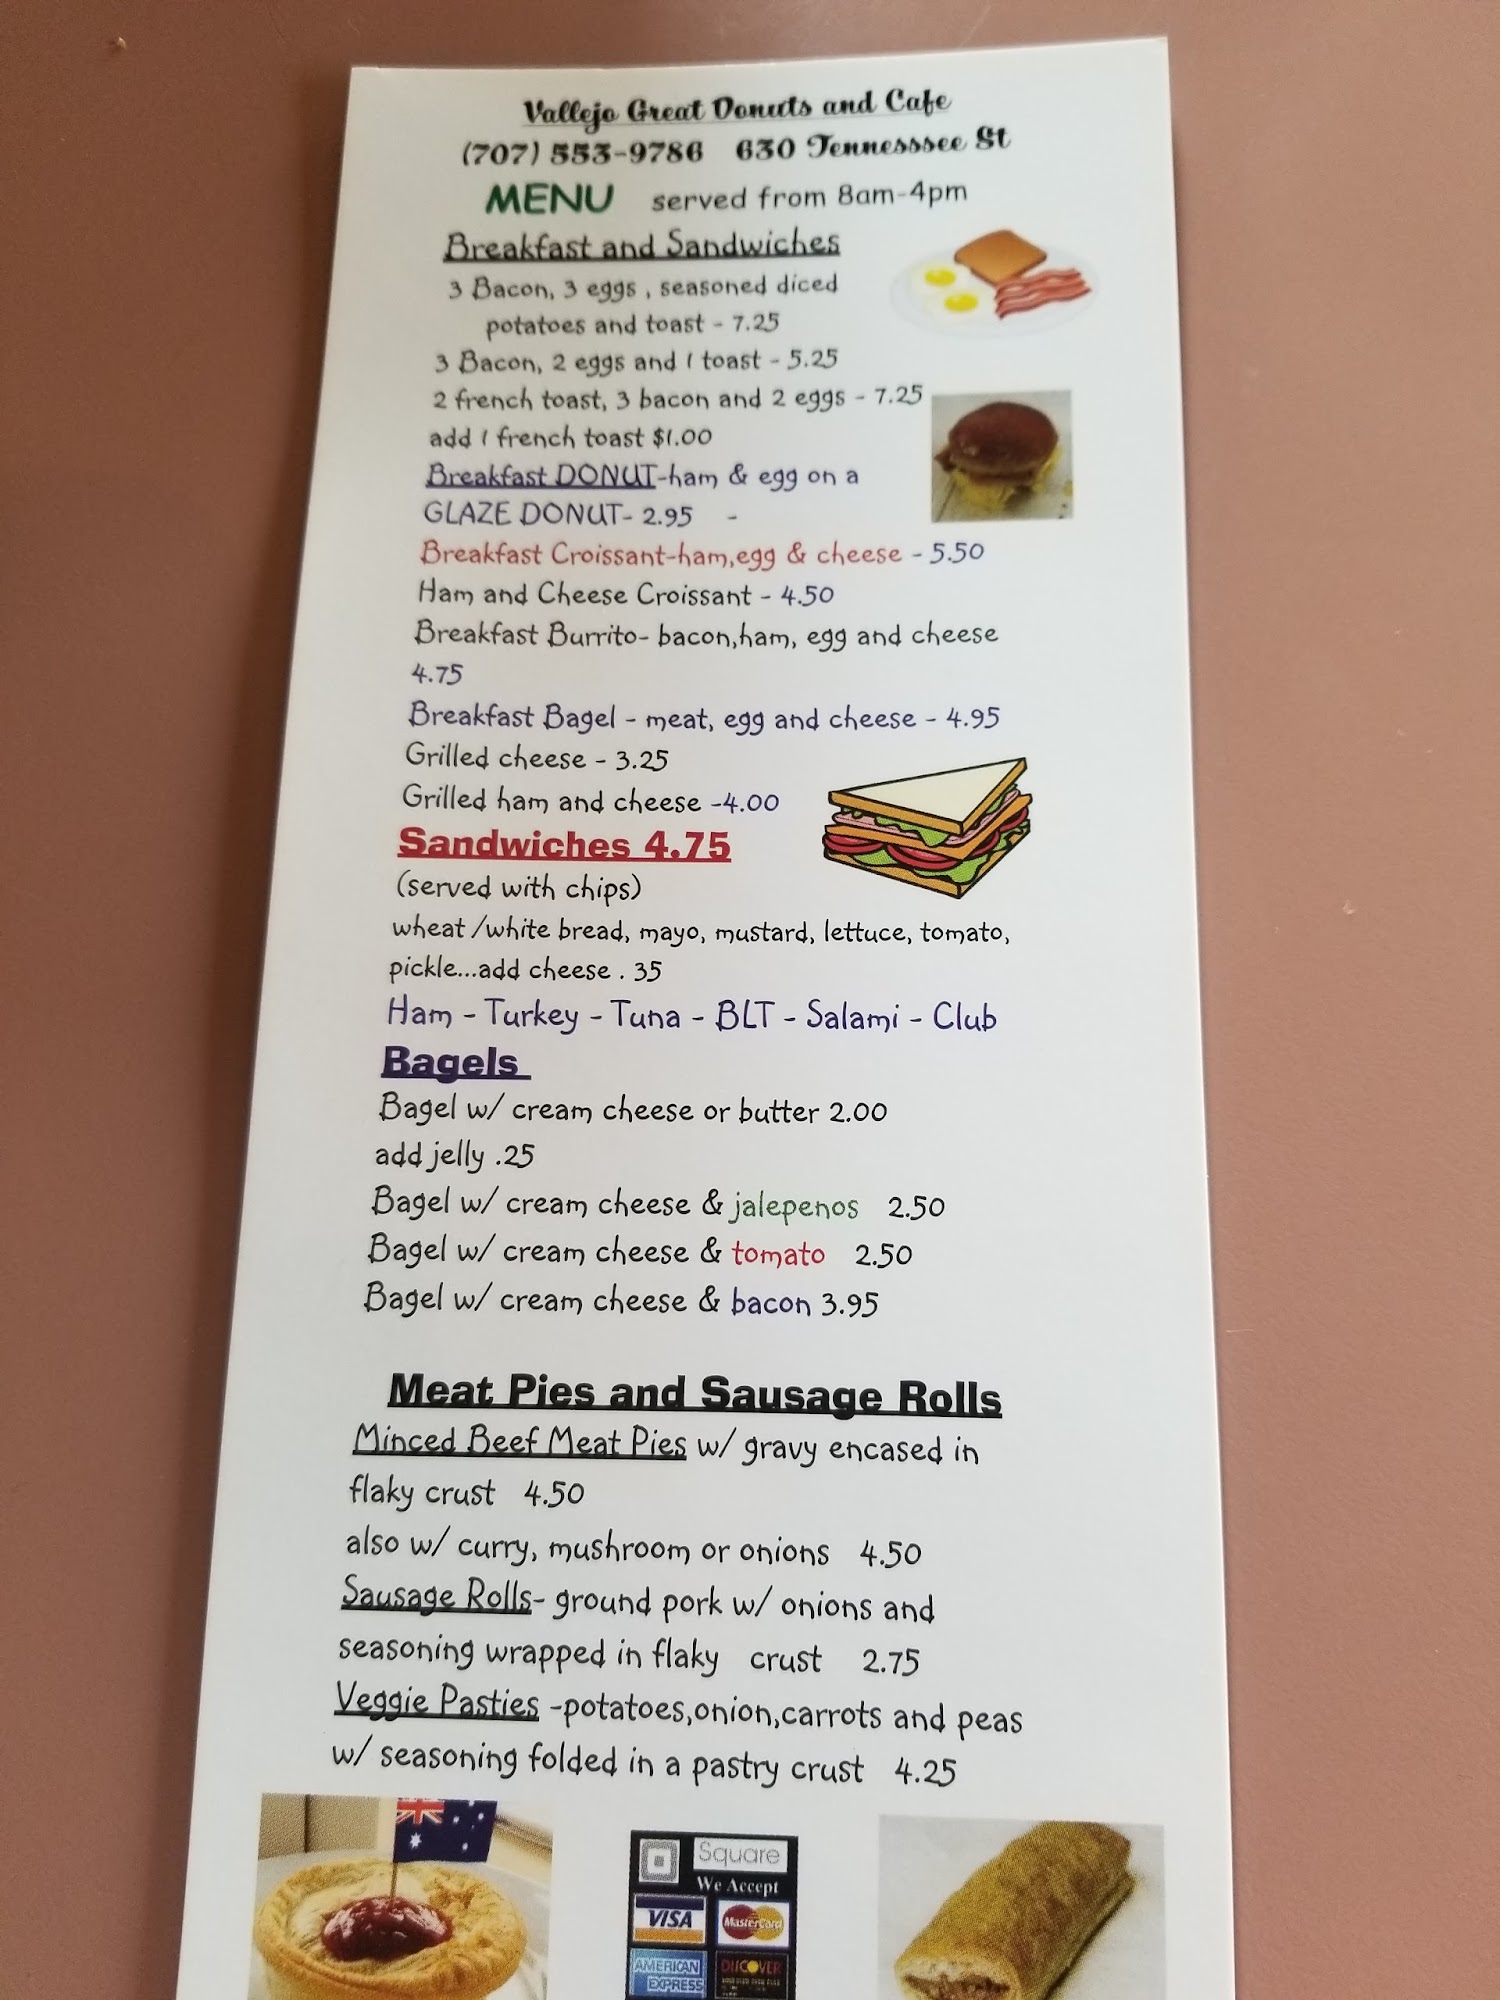 Vallejo Great Donuts and Cafe
(707) 553-9786 630 Tennesssee St
MENU served from 8am-4pm
Breakfast and Sandwiches
3 Bacon, 3 eggs , seasoned diced
potatoes and toast - 7.25
3 Bacon, 2 eggs and 1 toast - 5.25
2 french toast, 3 bacon and 2 eggs - 7.25
add 1 french toast $1.00
Breakfast DONUT-ham & egg on a
GLAZE DONUT- 2.95 -
Breakfast Croissant-ham,egg & cheese - 5.50
Ham and Cheese Croissant - 4.50
Breakfast Burrito- bacon,ham, egg and cheese
4.75
Breakfast Bagel - meat, egg and cheese - 4.95
Grilled cheese - 3.25
Grilled ham and cheese -4.00
Sandwiches 4.75
(served with chips)
wheat /white bread, mayo, mustard, lettuce, tomato,
pickle...add cheese . 35
Ham - Turkey - Tuna - BLT - Salami - Club
Bagels
Bagel w/ cream cheese or butter 2.00
add jelly .25
Bagel w/ cream cheese & jalepenos 2.50
Bagel w/ cream cheese & tomato 2.50
Bagel w/ cream cheese & bacon 3.95
Meat Pies and Sausage Rolls
Minced Beef Meat Pies w/ gravy encased in
flaky crust 4.50
also w/ curry, mushroom or onions 4.50
Sausage Rolls- ground pork w/ onions and
seasoning wrapped in flaky crust 2.75
Veggie Pasties -potatoes,onion,carrots and peas
w/ seasoning folded in a pastry crust 4.25
Square
We Accept
VISA MasterCard
AMERICAN EXPRESS DISCOVER